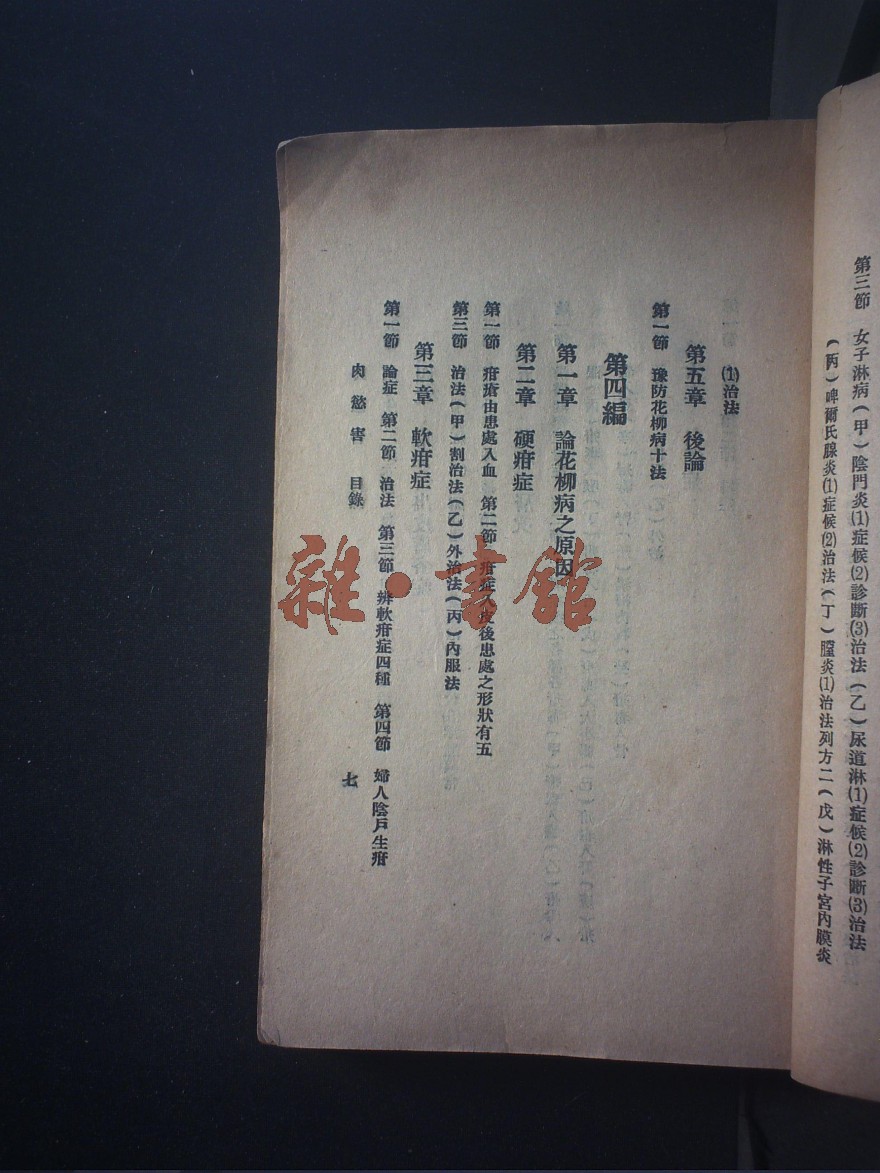 第三節　女子淋病(甲)陰門炎(1)症候(2)診斷(3)治法(乙)尿道淋(1)症候(2)診斷(3)治法
(丙)啤爾氏腺炎(1)症候(2)治法(丁)膣炎(1)治法列方二(戊)淋性子宮內膜炎
(1)治法
第五章　後論
第一節　豫防花柳病十法
第四編
第一章　論花柳病之原因
第二章　硬疳症
第一節　疳瘡由患處入血　第二節　疳症入皮後患處之形狀有五
第三節　治法(甲)割治法(乙)外治法(丙)內服法
第三章　軟疳症
第一節　論症　第二節　治法　第三節　辨軟疳症四種　第四節　婦人陰戶生疳
肉慾害　目錄　七
雜·書館